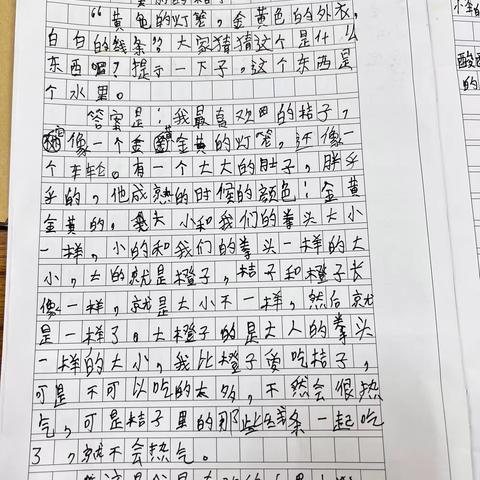 “黄色的灯笼，金黄色的外衣，
白白的线条”？大家猜猜这个是什么
东西呢？提示一下子，这个东西是
个水里。
答案是：我最喜欢的桔子，
像一个金黄的灯笼，还像一
个车轮。有一个大大的肚子，胖乎
乎的，他成熟的时候的颜色：金黄
金黄的。大小和我们的拳头大小
一样，小的和我们的拳头一样的大
小，大的就是橙子，桔子和橙子长
像一样，就是大小不一样，然后就
是一样了。大橙子的是大人的拳头
一样的大小，我比橙子爱吃桔子，
可是不可以吃的太多，不然会很热
气，可是桔子里的那些丝条一起吃
了，就不会热气。
酸